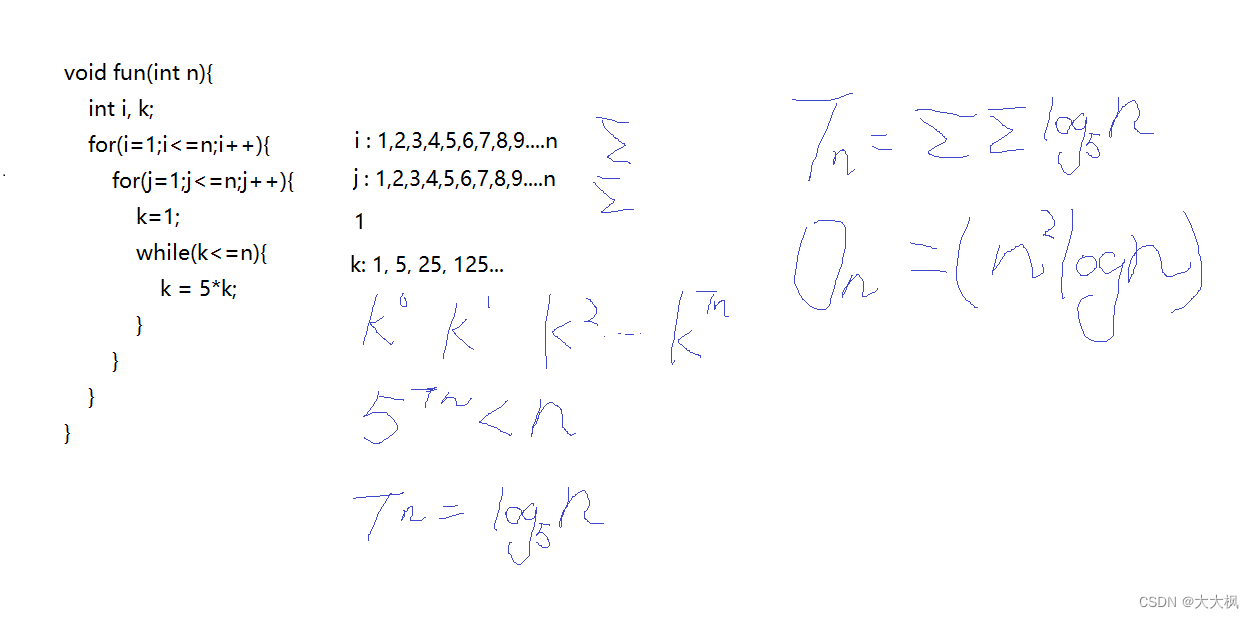 void fun(int n){
int i, k;
for(i=1;i<=n;i++){
for(j=1;j<=n;j++){
k=1;
while(k<=n){
k = 5*k;
}
}
}
}
i : 1,2,3,4,5,6,7,8,9....n
j : 1,2,3,4,5,6,7,8,9....n
1
k: 1, 5, 25, 125...
Σ
Σ
k⁰ k¹ k² ... k^Tn
5^Tn < n
Tn = log₅n
Tn = ΣΣlog₅n
On = (n²logn)
CSDN @大大枫